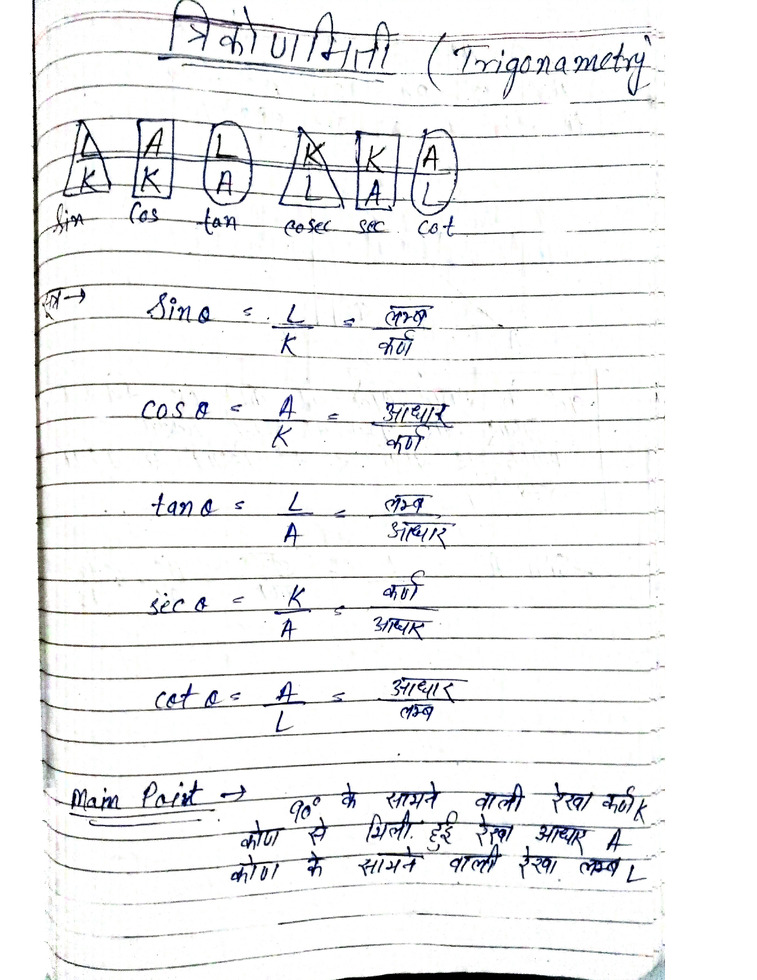 त्रिकोणमिती (Trigonametry
L A L K K A
K K A L A L
Sin Cos tan cosec sec cot
सूत्र→ Sinθ = L/K = लम्ब/कर्ण
cosθ = A/K = आधार/कर्ण
tanθ = L/A = लम्ब/आधार
secθ = K/A = कर्ण/आधार
cotθ = A/L = आधार/लम्ब
Main Point → 90° के सामने वाली रेखा कर्ण K
कोण से मिली हुई रेखा आधार A
कोण के सामने वाली रेखा लम्ब L